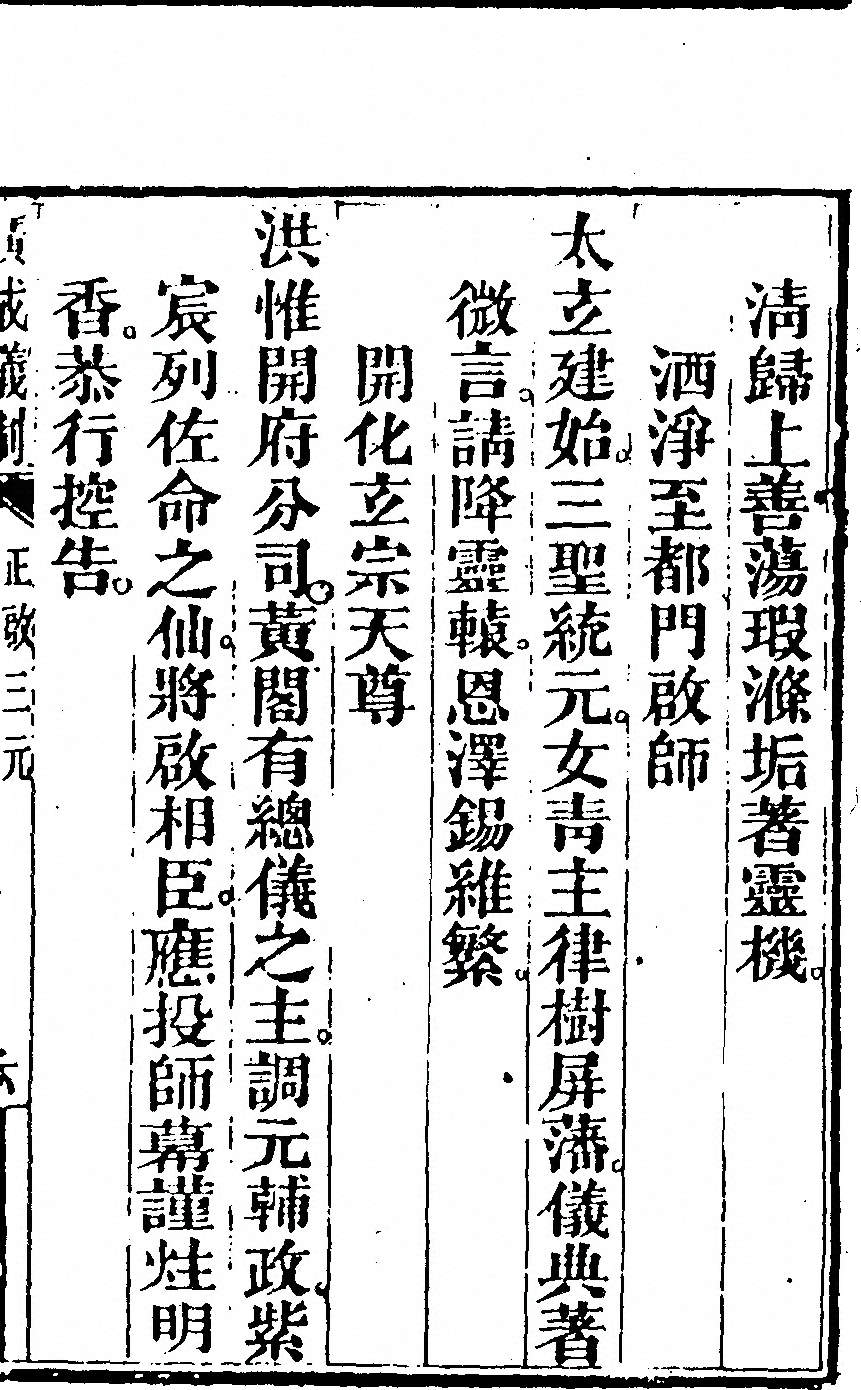 淸歸上善蕩瑕滌垢著靈機。
洒淨至都門啟師
太立建始。三聖統元。女靑主律樹屏藩。儀典著
微言。請降靈轅。恩澤錫維繁。
開化立宗天尊
洪惟開府分司。黃閣有總儀之主。調元輔政。紫
宸列佐命之仙。將啟相臣。應投師幕謹炷明
香。恭行控告。
廣成儀制
正啟三元